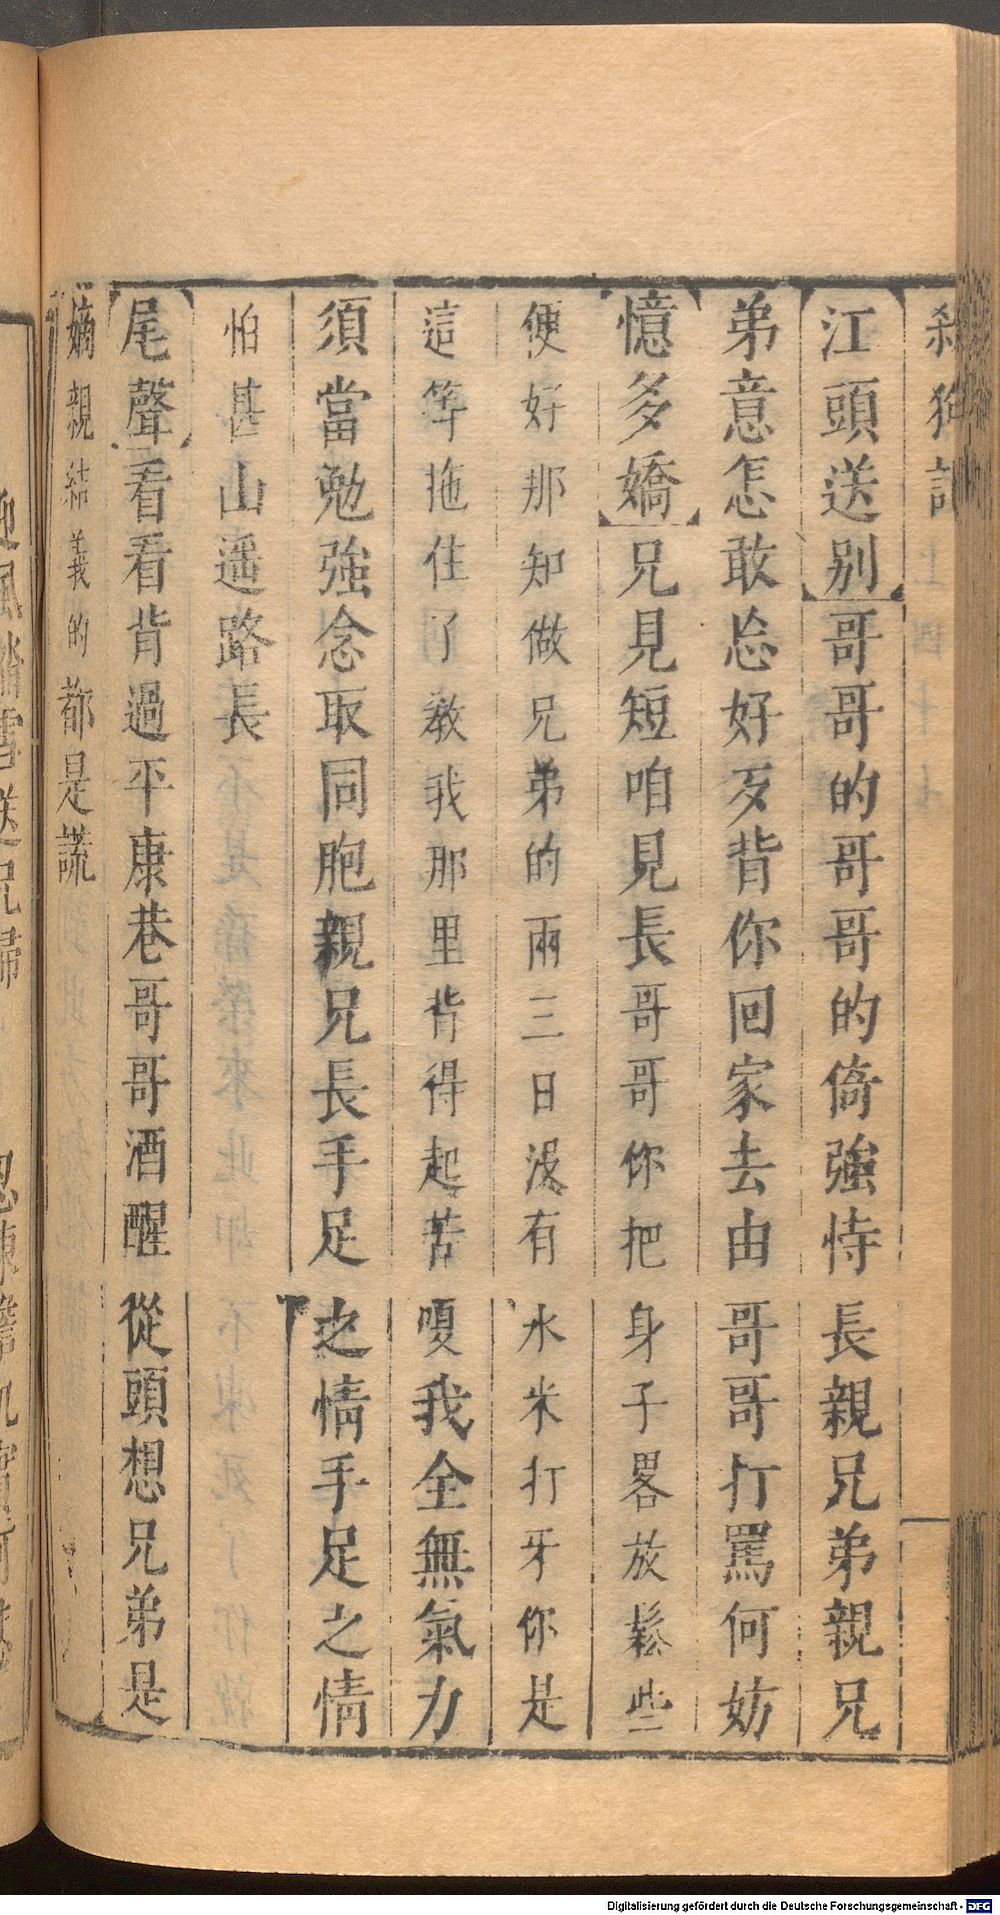 殺狗記
江頭送别哥哥的哥哥的倚強恃長親兄弟親兄
弟意怎敢忘好歹背你回家去由哥哥打罵何妨
憶多嬌兄見短咱見長哥哥你把身子畧放鬆些
便好那知做兄弟的兩三日没有水米打牙你是
這等拖住了教我那里背得起苦嗄我全無氣力
須當勉強念取同胞親兄長手足之情手足之情
怕甚山遥路長
尾聲看看背過平康巷哥哥酒醒從頭想兄弟是
嫡親結義的都是謊
Digitalisierung gefördert durch die Deutsche Forschungsgemeinschaft - DFG